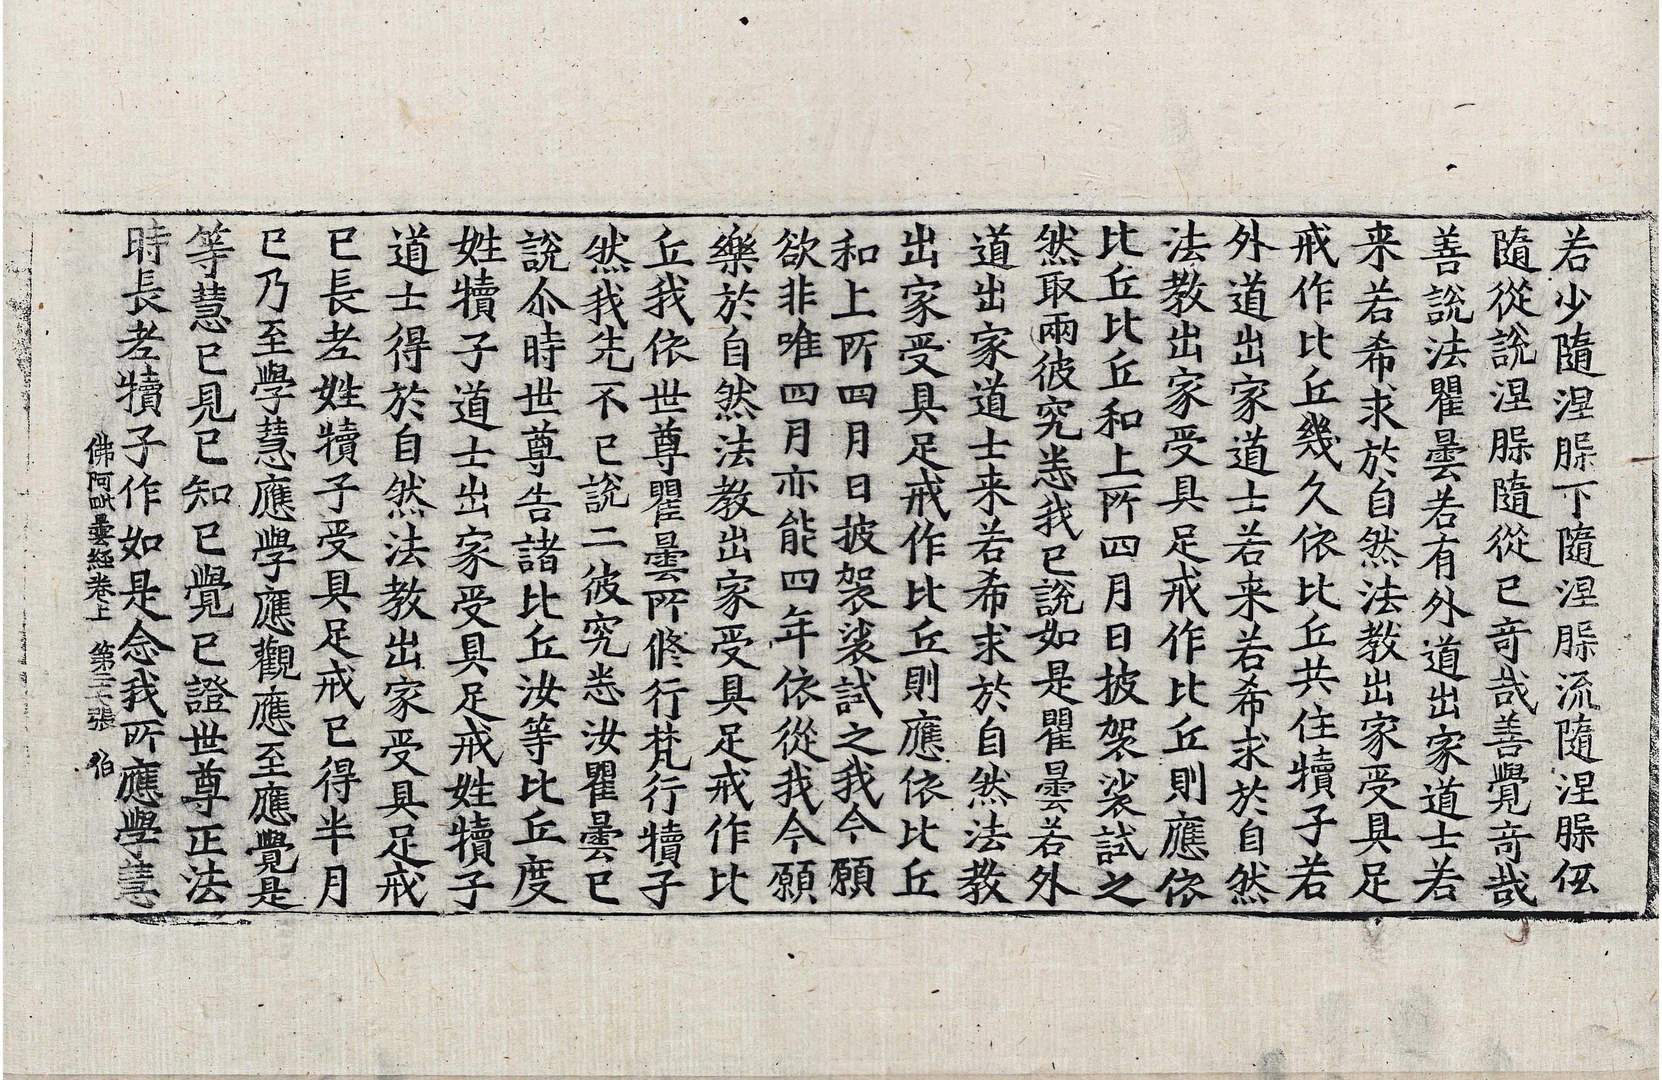 若少隨涅槃下隨涅槃流隨涅槃仾
隨從說涅槃隨從已奇哉善覺奇哉
善說法瞿曇若有外道出家道士若
来若希求於自然法教出家受具足
戒作比丘幾久依比丘共住犢子若
外道出家道士若来若希求於自然
法教出家受具足戒作比丘則應依
比丘比丘和上所四月日披袈裟試之
然取兩彼究恙我已說如是瞿曇若外
道出家道士来若希求於自然法教
出家受具足戒作比丘則應依比丘
和上所四月日披袈裟試之我今願
欲非唯四月亦能四年依從我今願
樂於自然法教出家受具足戒作比
丘我依世尊瞿曇所修行梵行犢子
然我先不已說二彼究恙汝瞿曇已
說尒時世尊告諸比丘汝等比丘度
姓犢子道士出家受具足戒姓犢子
道士得於自然法教出家受具足戒
已長老姓犢子受具足戒已得半月
已乃至學慧應學應觀應至應覺是
等慧已見已知已覺已證世尊正法
時長老犢子作如是念我所應學慧
佛阿毗曇經卷上 第二十七張 伯